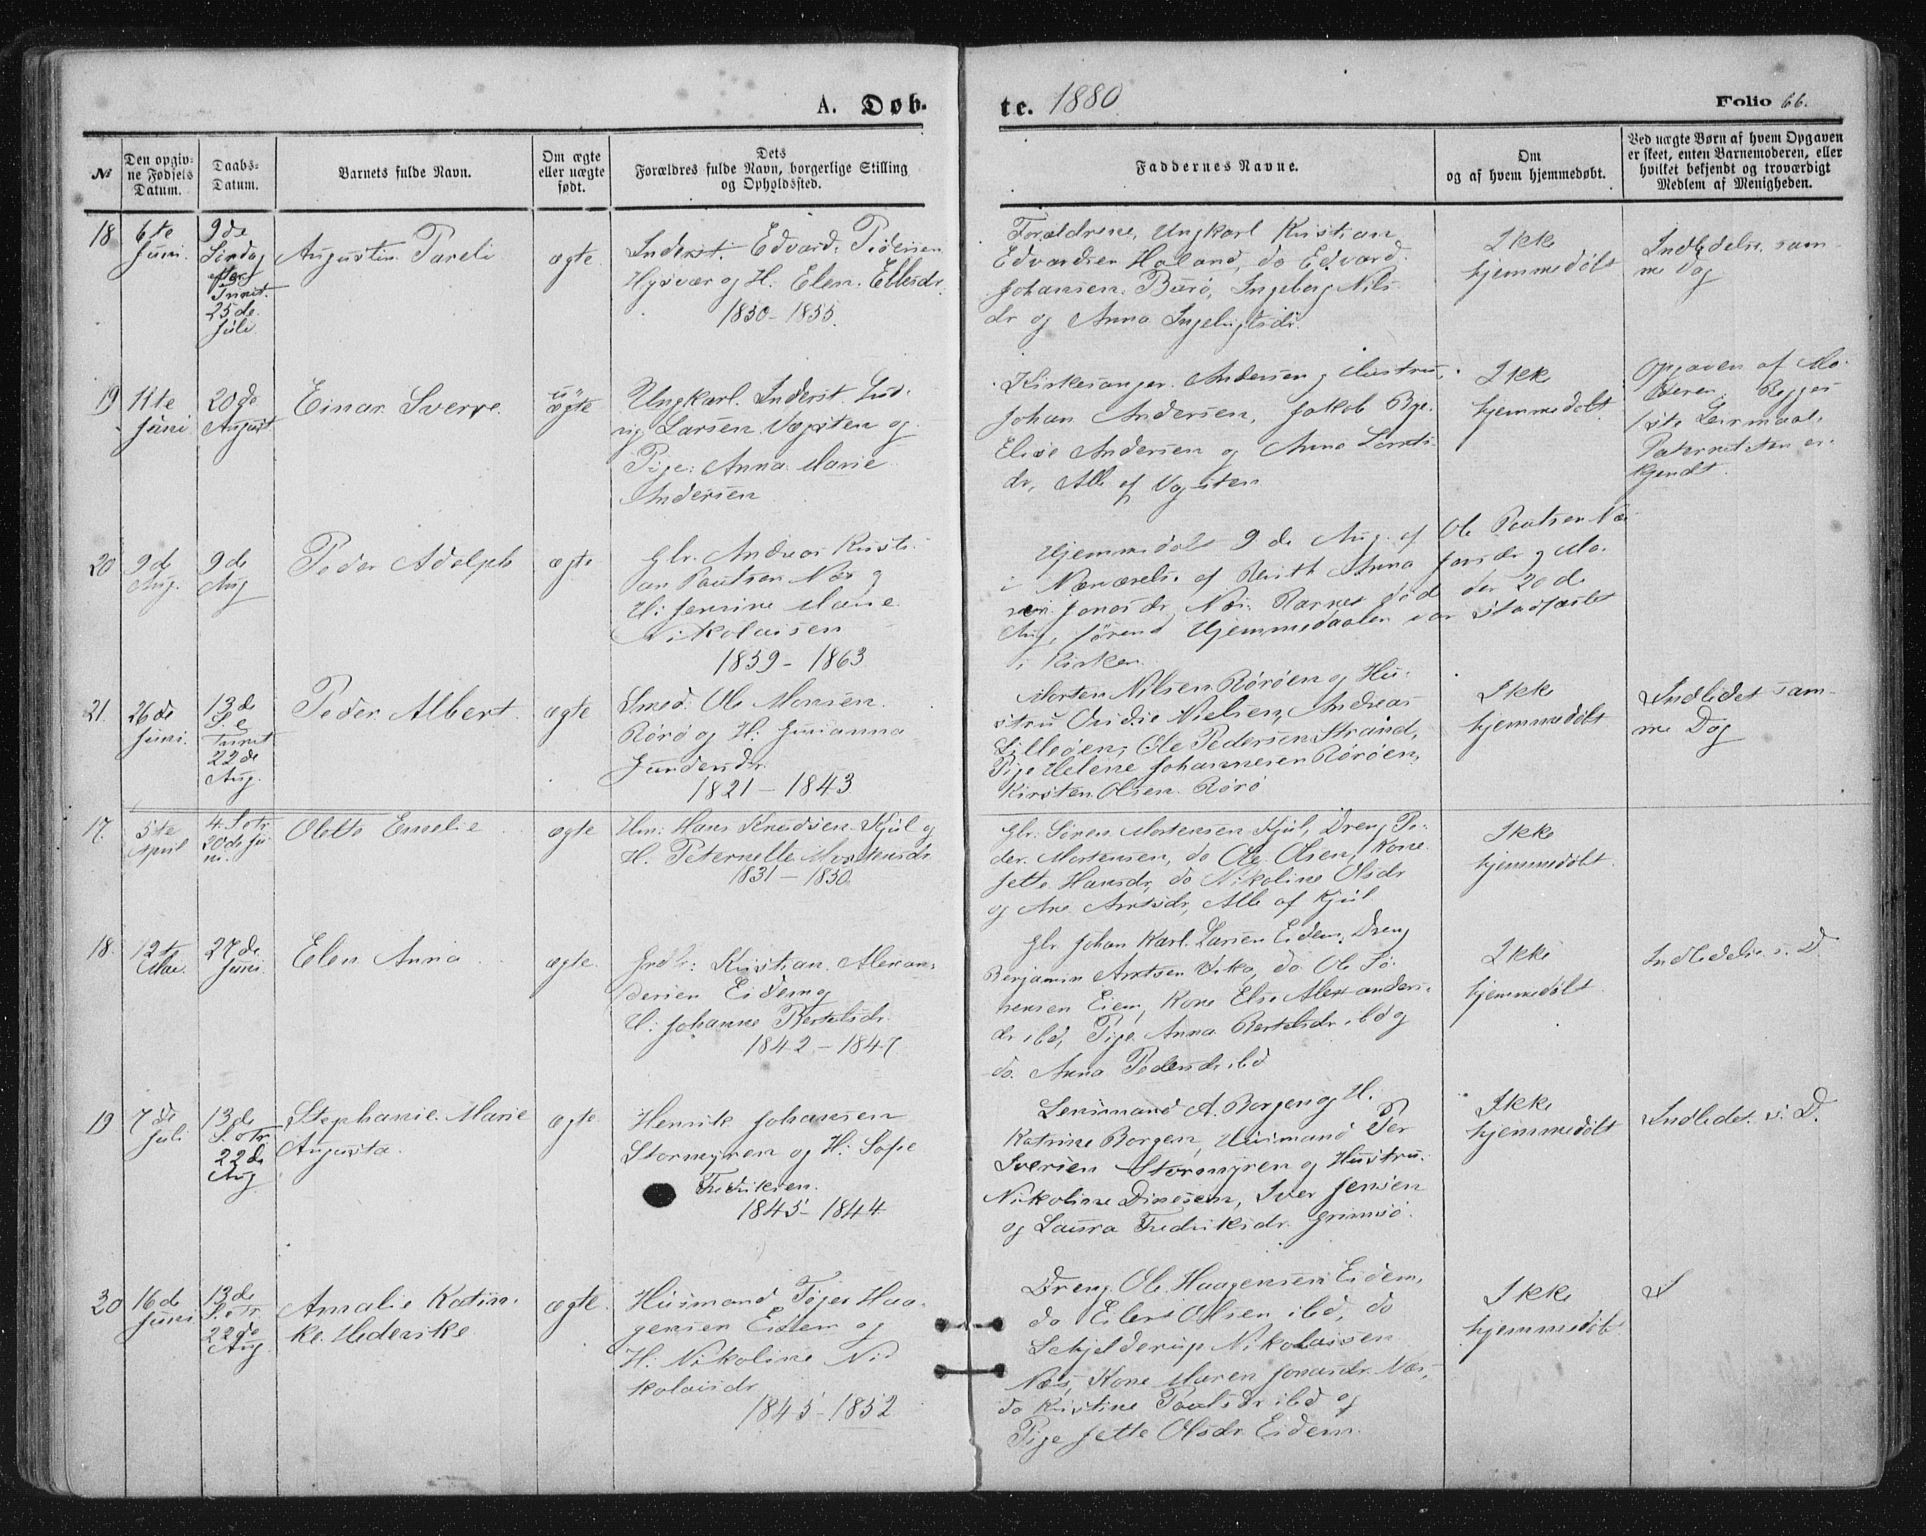 A. Døb-
te. 1880
Folio 66.
№
Den opgiv-
ne Fødsels
Datum.
Daabs-
Datum.
Barnets fulde Navn.
Om ægte
eller uægte
født.
Dets
Forældres fulde Navn, borgerlige Stilling
og Opholdssted.
Faddernes Navne.
Om
og af hvem hjemmedøbt.
Ved uægte Børn af hvem Opgaven
er skeet, enten Barnemoderen, eller
hvilket bekjendt og troværdigt
Medlem af Menigheden.
18
6te
Juni
9de
Søndag
efter
Trinit.
25de
Juli
Augustin Pareli
ægte
Inderst. Edvard Pedersen
Hysvær og H. Elen Ellesdr
1850-1855.
Forældrene, Ungkarl Kristian
Edvardsen Haland, do Edvard
Johansen Barø, Ingeborg Nils
dr og Anna Ingebrigtsdr.
Ikke
hjemmedøbt
Indledelse sam-
me Dag
19
11te
Juni
20de
August
Einar Sverre
u
ægte
Ungkarl. Inderst. Lud-
vig Larsen Vægsten og
Pige: Anna Marie
Andersen
Kirkesanger Andersen og Hustru,
Johan Andersen, Jakob Bye
Elise Andersen og Anna Lorents
dr, Alle af Vægsten
Ikke
hjemmedøbt
Opgaven af Mo-
deren. Begges
1ste Leirmaal.
Paterniteten er-
kjendt.
20
9de
Aug.
9de
Aug
Peder Adolph
ægte
Gbr. Andreas Kristi-
an Paulsen Næs og
H: Jensine Marie
Nikolaisen
1859-1863
Hjemmedøbt 9de Aug. af Ole Paulsen Næs
i Nærværelse af Berith Anna Jonsdr og Ma-
ren Jonasdr Næs. Barnet død den 20de
Aug, førend Hjemmedaaben var stadfæstet
i Kirken
21.
26de
Juni.
13de
S. e
Trinit
22de
Aug.
Peder Albert
ægte
Smed. Ole Monsen
Rørø og H: Gurianna
Gundersdr
1821-1843
Morten Nilsen Rørøen og Hu-
stru Ovidie Nielsen, Andreas
Lilleøen, Ole Pedersen Strand,
Pige Helene Johannesen Rørøen,
Kirsten Olsen Rørø
Ikke
hjemmedøbt
Indledet sam-
me Dag
17.
5te
April
4. S o tr
20de Ju
ni.
Olette Emelie
ægte
Hm: Hans Knudsen Kjul og
H. Peternelle Mortensdr
1831-1830
Gbr. Søren Mortensen Kjul, Dreng Pe-
der Mortensen, do Ole Olsen, Kone
Jette Hansdr, do Nikoline Olsdr
og Ane Arntsdr, Alle af Kjul
Ikke
hjemmedøbt
18.
12te
Mai
27de
Juni
Elen Anna
ægte
Grdbr: Kristian Alexan-
dersen Eidem og
H: Johanne Bertelsdr.
1842-1841
Gbr Johan Karl Larsen Eidem, Dreng
Benjamin Arntsen, do Ole Sø-
rensen Eiem, Kone Else Alexanders
dr ibd, Pige Anna Bertelsdr ibd og
do. Anna Pedersdr ibd
Ikke
hjemmedøbt
Indledelse s. D.
19
7de
Juli
13de
S. o tr
22de
Aug
Stephanie Marie
Augusta.
ægte
Henrik Johansen
Stormyren og H. Sofie
Fredriksen.
1845-1844
Lensmand A. Borgen og H.
Katrine Borgen, Husmand Per
Iversen Stormyren og Hustru
Nikoline Dinesen, Iver Jensen
og Laura Fredriksdr Grimsø.
Ikke
hjemmedøbt
Indledet s. D.
20
16de
Juni
13de
S. o tr
22de
Aug
Amalie Katin-
ka Hederike
ægte
Husmand Tøger Haa-
gensen Eidem og
H: Nikoline Ni
kolaisdr
1845-1852
Dreng Ole Haagensen Eidem,
do Eilert Olsen ibd, do
Schjelderup Nikolaisen
Næs, Kone Maren Jonasdr Næs,
do Kristine Paulsdr ibd og
Pige Jette Olsdr Eidem.
Ikke
hjemmedøbt